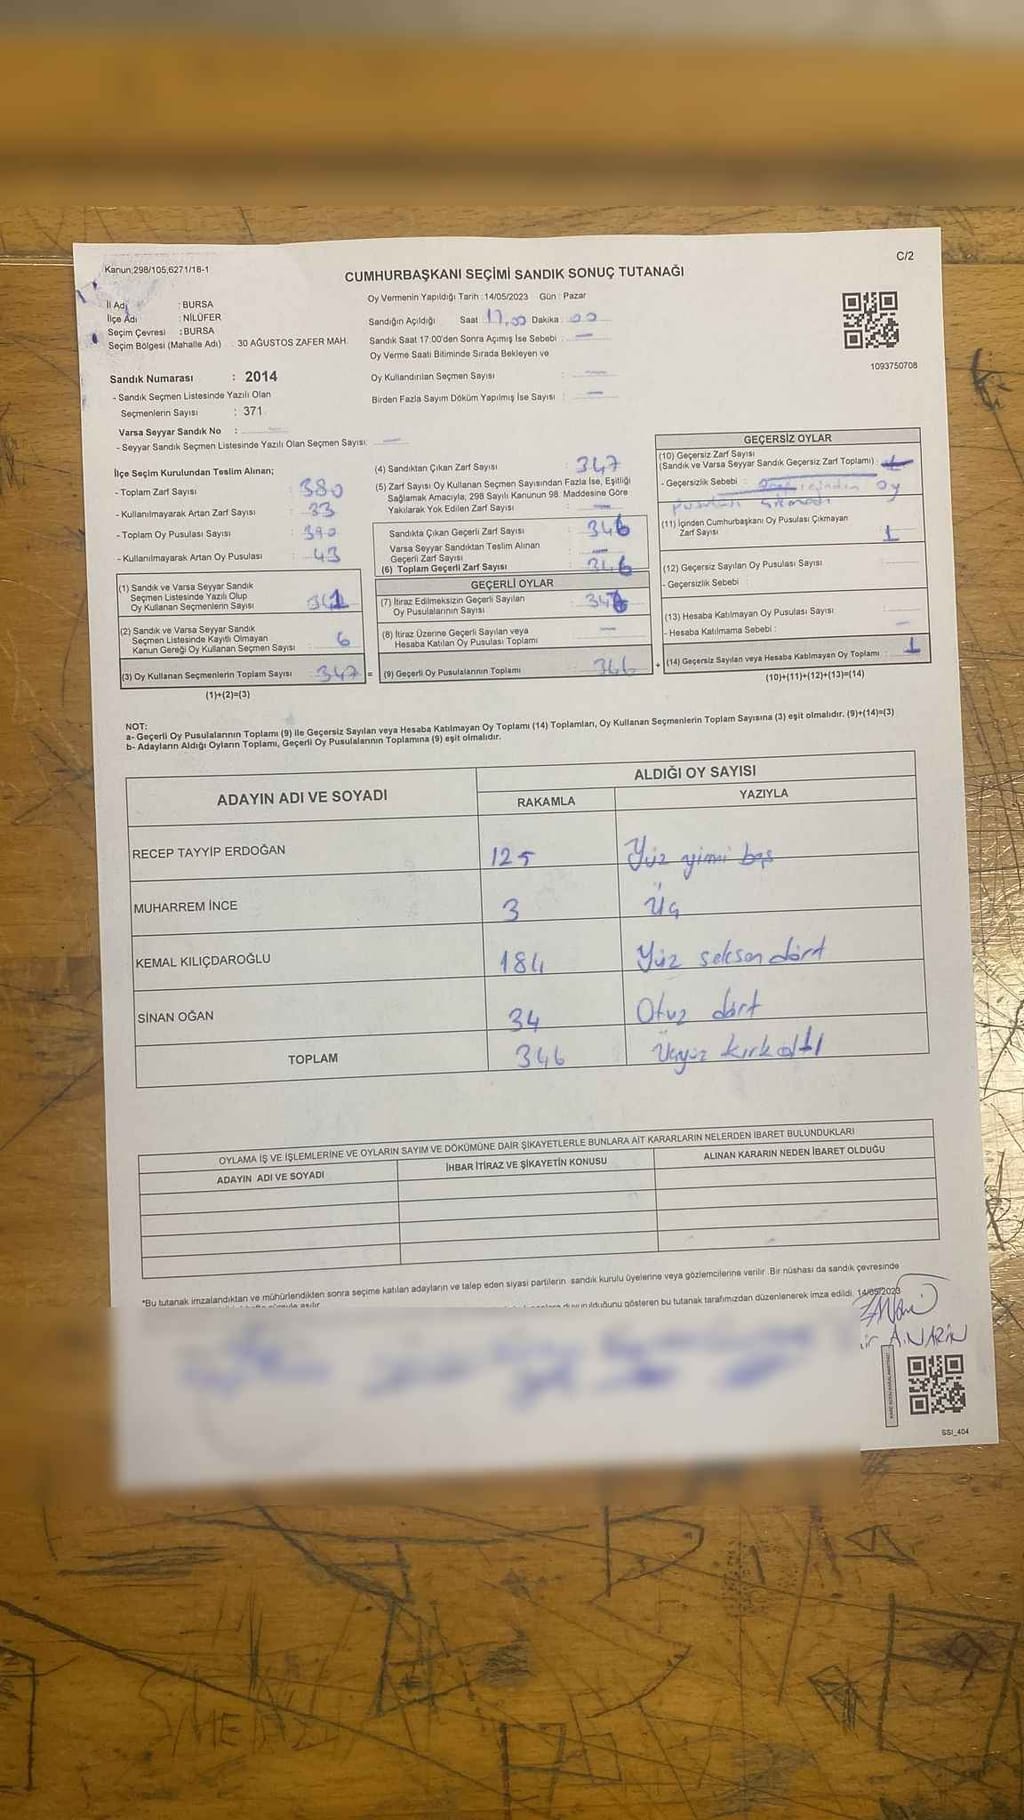 Kanun;298/105,6271/18-1
C/2
CUMHURBAŞKANI SEÇİMİ SANDIK SONUÇ TUTANAĞI
İl Adı : BURSA
İlçe Adı : NİLÜFER
Seçim Çevresi : BURSA
Seçim Bölgesi (Mahalle Adı) : 30 AĞUSTOS ZAFER MAH.
Sandık Numarası : 2014
- Sandık Seçmen Listesinde Yazılı Olan
Seçmenlerin Sayısı : 371
Varsa Seyyar Sandık No : —
- Seyyar Sandık Seçmen Listesinde Yazılı Olan Seçmen Sayısı: —
Oy Vermenin Yapıldığı Tarih : 14/05/2023 Gün : Pazar
Sandığın Açıldığı Saat 17,00 Dakika : 00
Sandık Saat 17:00'den Sonra Açımış İse Sebebi : —
Oy Verme Saati Bitiminde Sırada Bekleyen ve
Oy Kullandırılan Seçmen Sayısı : —
Birden Fazla Sayım Döküm Yapılmış İse Sayısı : —
1093750708
İlçe Seçim Kurulundan Teslim Alınan;
- Toplam Zarf Sayısı : 380
- Kullanılmayarak Artan Zarf Sayısı : 33
- Toplam Oy Pusulası Sayısı : 390
- Kullanılmayarak Artan Oy Pusulası : 43
(1) Sandık ve Varsa Seyyar Sandık
Seçmen Listesinde Yazılı Olup
Oy Kullanan Seçmenlerin Sayısı : 341
(2) Sandık ve Varsa Seyyar Sandık
Seçmen Listesinde Kayıtlı Olmayan
Kanun Gereği Oy Kullanan Seçmen Sayısı : 6
(3) Oy Kullanan Seçmenlerin Toplam Sayısı : 347 =
(1)+(2)=(3)
(4) Sandıktan Çıkan Zarf Sayısı : 347
(5) Zarf Sayısı Oy Kullanan Seçmen Sayısından Fazla İse, Eşitliği
Sağlamak Amacıyla, 298 Sayılı Kanunun 98. Maddesine Göre
Yakılarak Yok Edilen Zarf Sayısı : —
Sandıkta Çıkan Geçerli Zarf Sayısı : 346
Varsa Seyyar Sandıktan Teslim Alınan
Geçerli Zarf Sayısı : —
(6) Toplam Geçerli Zarf Sayısı : 346
GEÇERLİ OYLAR
(7) İtiraz Edilmeksizin Geçerli Sayılan
Oy Pusulalarının Sayısı : 346
(8) İtiraz Üzerine Geçerli Sayılan veya
Hesaba Katılan Oy Pusulası Toplamı : —
(9) Geçerli Oy Pusulalarının Toplamı : 346 +
GEÇERSİZ OYLAR
(10) Geçersiz Zarf Sayısı
(Sandık ve Varsa Seyyar Sandık Geçersiz Zarf Toplamı) :
- Geçersizlik Sebebi : oy
pusulası çıkmadı
(11) İçinden Cumhurbaşkanı Oy Pusulası Çıkmayan
Zarf Sayısı : 1
(12) Geçersiz Sayılan Oy Pusulası Sayısı :
- Geçersizlik Sebebi :
(13) Hesaba Katılmayan Oy Pusulası Sayısı :
- Hesaba Katılmama Sebebi : —
(14) Geçersiz Sayılan veya Hesaba Katılmayan Oy Toplamı : 1
(10)+(11)+(12)+(13)=(14)
NOT:
a- Geçerli Oy Pusulalarının Toplamı (9) ile Geçersiz Sayılan veya Hesaba Katılmayan Oy Toplamı (14) Toplamları, Oy Kullanan Seçmenlerin Toplam Sayısına (3) eşit olmalıdır. (9)+(14)=(3)
b- Adayların Aldığı Oyların Toplamı, Geçerli Oy Pusulalarının Toplamına (9) eşit olmalıdır.
ADAYIN ADI VE SOYADI
ALDIĞI OY SAYISI
RAKAMLA YAZIYLA
RECEP TAYYİP ERDOĞAN 125 Yüz yimi beş
MUHARREM İNCE 3 Üç
KEMAL KILIÇDAROĞLU 184 Yüz seksen dört
SİNAN OĞAN 34 Otuz dört
TOPLAM 346 Üçyüz kırk altı
OYLAMA İŞ VE İŞLEMLERİNE VE OYLARIN SAYIM VE DÖKÜMÜNE DAİR ŞİKAYETLERLE BUNLARA AİT KARARLARIN NELERDEN İBARET BULUNDUKLARI
ADAYIN ADI VE SOYADI İHBAR İTİRAZ VE ŞİKAYETİN KONUSU ALINAN KARARIN NEDEN İBARET OLDUĞU
*Bu tutanak imzalandıktan ve mühürlendikten sonra seçime katılan adayların ve talep eden siyasi partilerin sandık kurulu üyelerine veya gözlemcilerine verilir. Bir nüshası da sandık çevresinde
duyurulduğunu gösteren bu tutanak tarafımızdan düzenlenerek imza edildi. 14/05/2023
A.NARİN
SSI_404